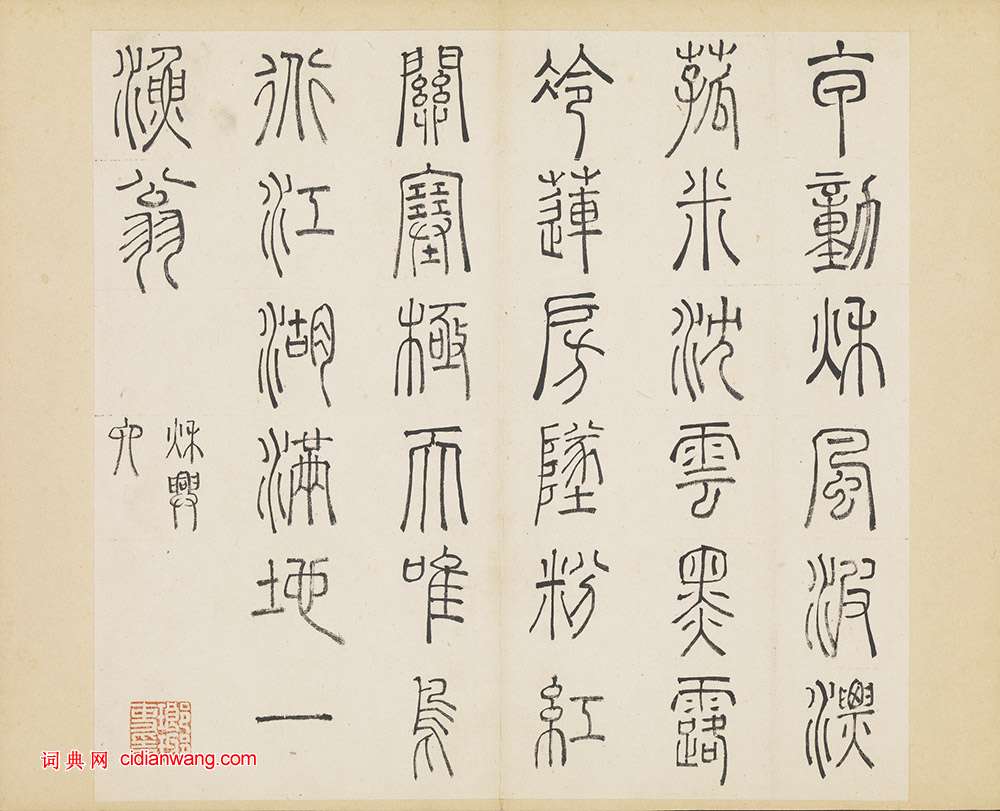 甲動秋風波漂
菰米沈雲黑露
冷蓮房墜粉紅
關塞極天唯鳥
道江湖滿地一
漁翁
秋興
六
词典网 cidianwang.com